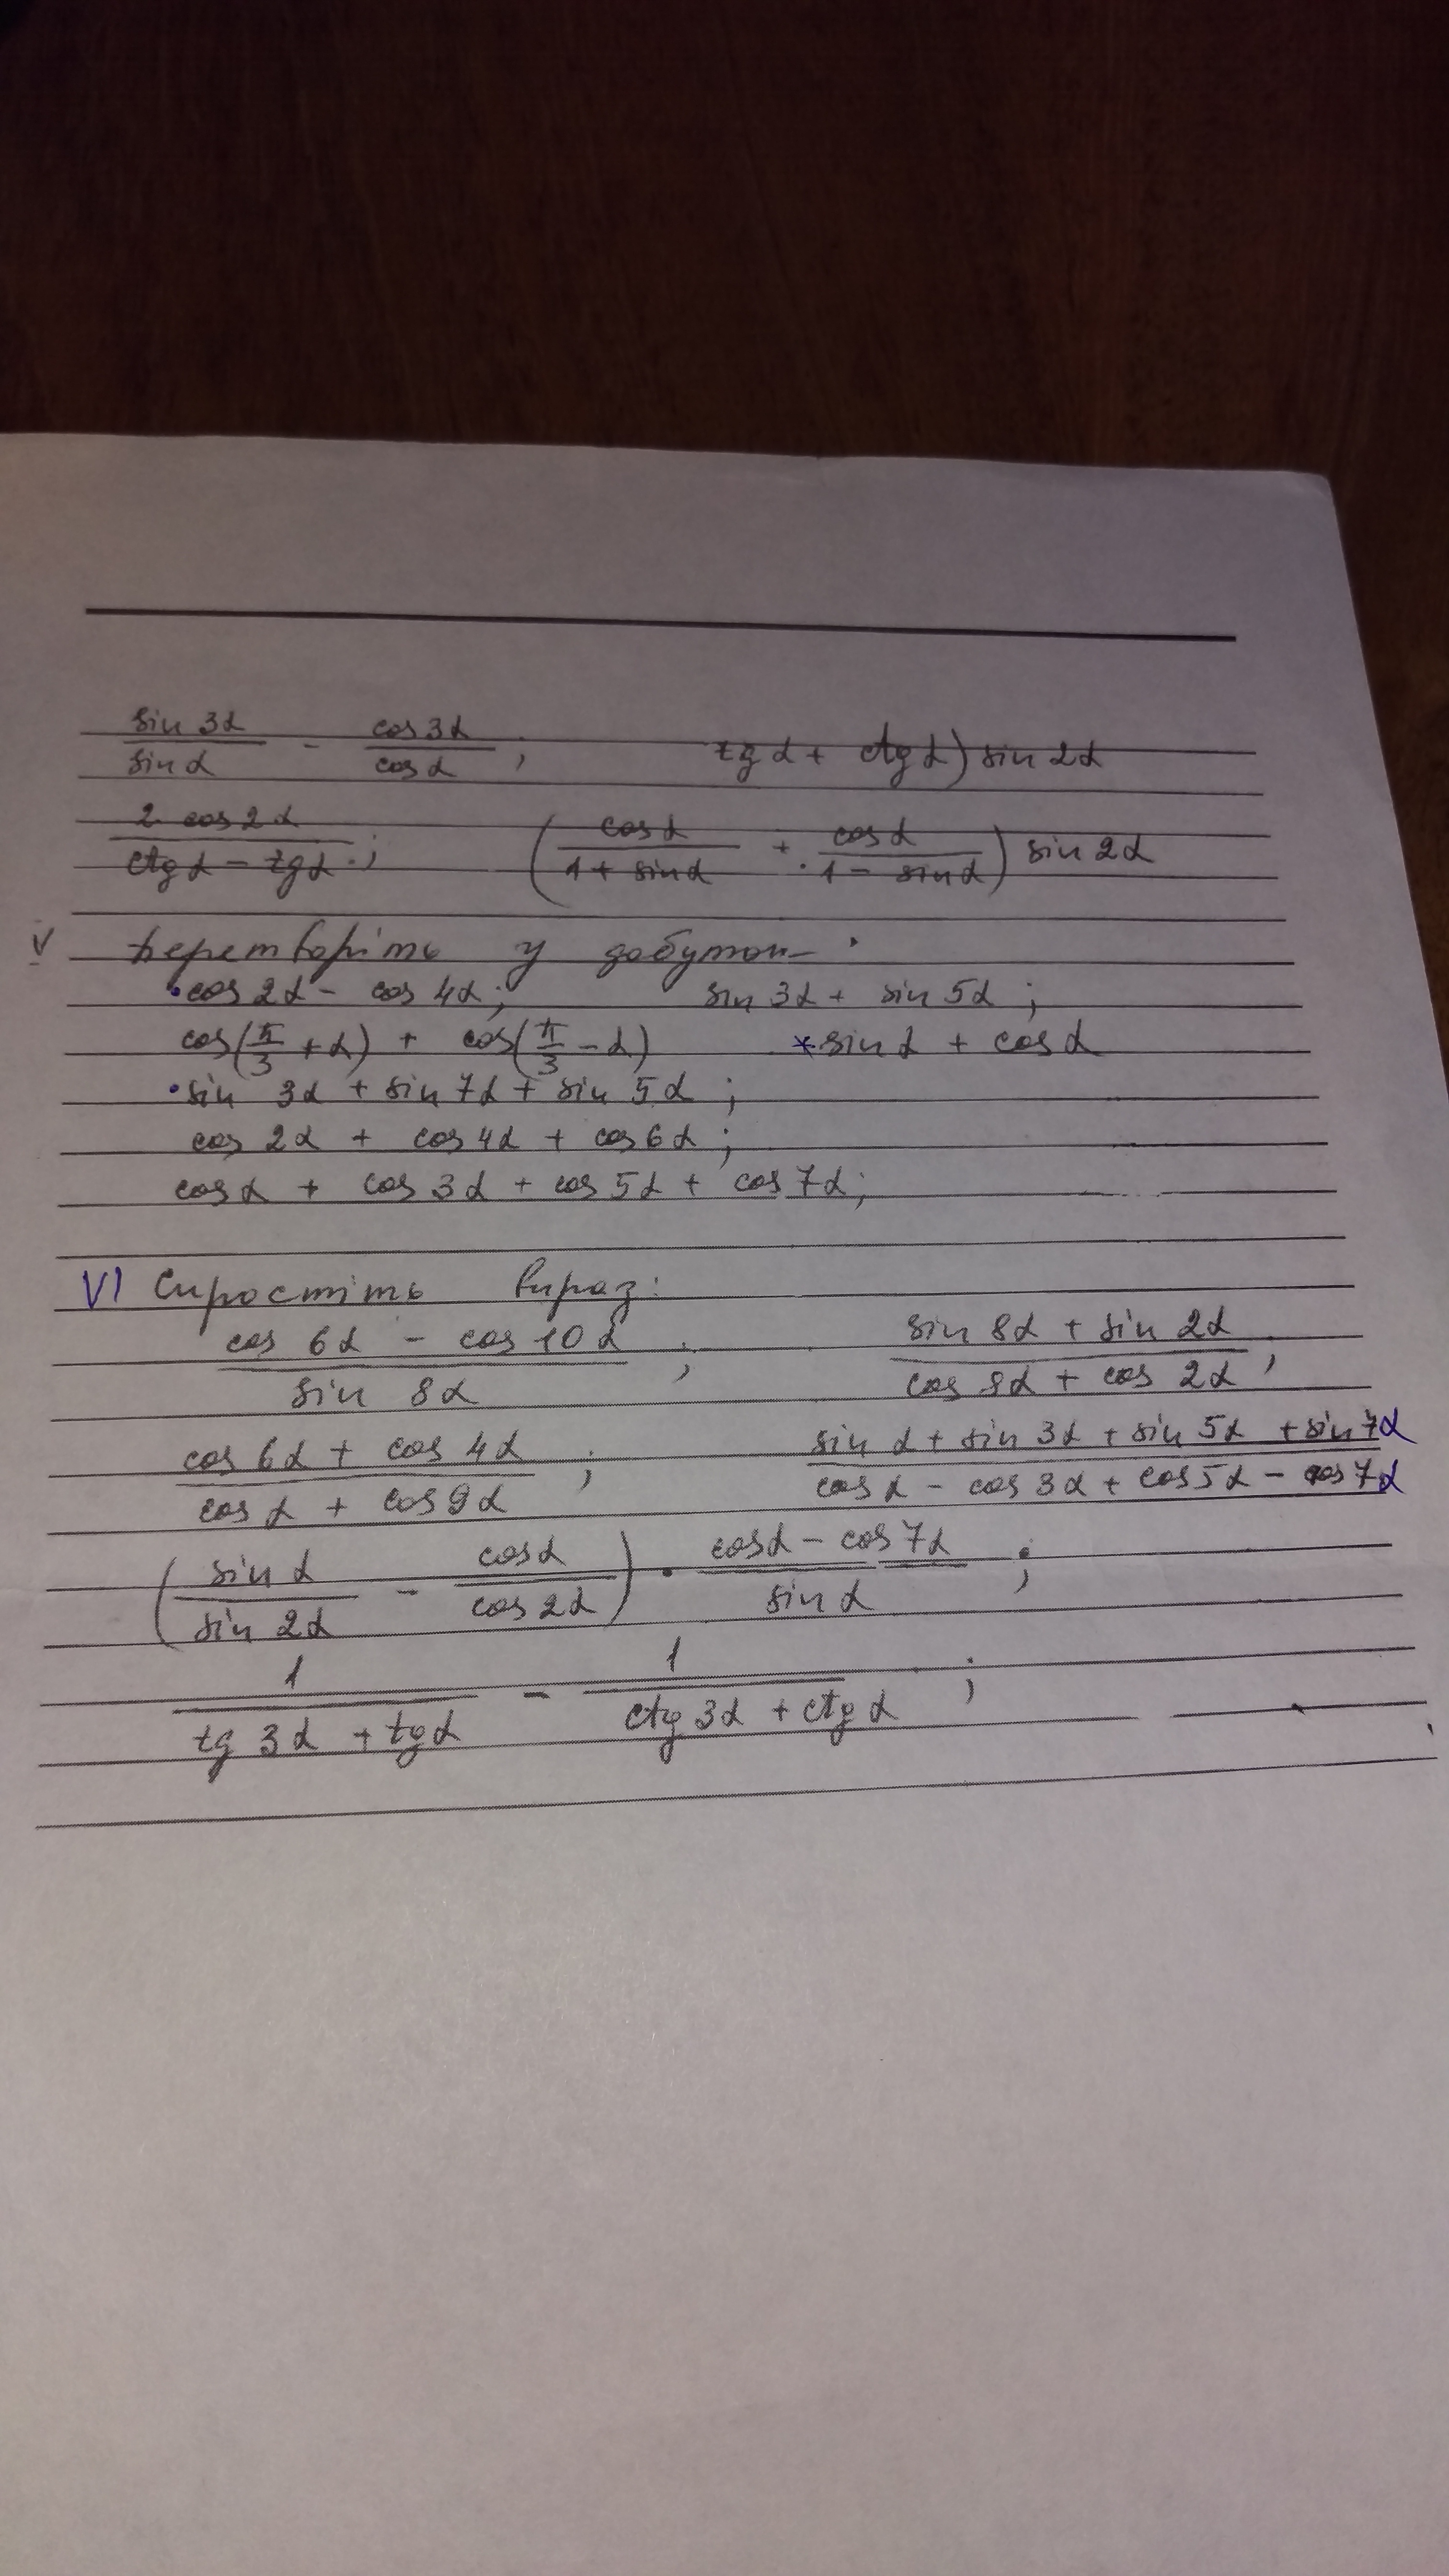 sin 3α / sin α - cos 3α / cos α ; tg α + ctg α) sin 2α
2 cos 2α / ctg α - tg α ; (cos α / 1 + sin α + cos α / 1 - sin α) sin 2α
V Перетворіть у добуток
• cos 2α - cos 4α; sin 3α + sin 5α ;
cos(π/3 + α) + cos(π/3 - α) * sin α + cos α
• sin 3α + sin 7α + sin 5α ;
cos 2α + cos 4α + cos 6α ;
cos α + cos 3α + cos 5α + cos 7α;
VI Спростіть вираз:
cos 6α - cos 10α / sin 8α ; sin 8α + sin 2α / cos 8α + cos 2α ;
cos 6α + cos 4α / cos α + cos 9α ; sin α + sin 3α + sin 5α + sin 7α / cos α - cos 3α + cos 5α - cos 7α
(sin α / sin 2α - cos α / cos 2α) • cos α - cos 7α / sin α ;
1 / tg 3α + tg α - 1 / ctg 3α + ctg α ;